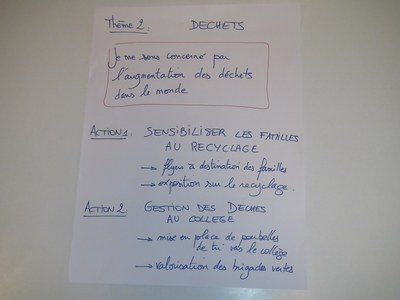 Thème 2. DECHETS
Je me sens concerné par
l'augmentation des déchets
dans le monde
ACTION 1: SENSIBILISER LES FAMILLES
AU RECYCLAGE
→ flyers à destination des familles
→ exposition sur le recyclage.
ACTION 2 GESTION DES DECHES
AU COLLEGE
→ mise en place de poubelles
de tri vers le collège
→ valorisation des brigades vertes